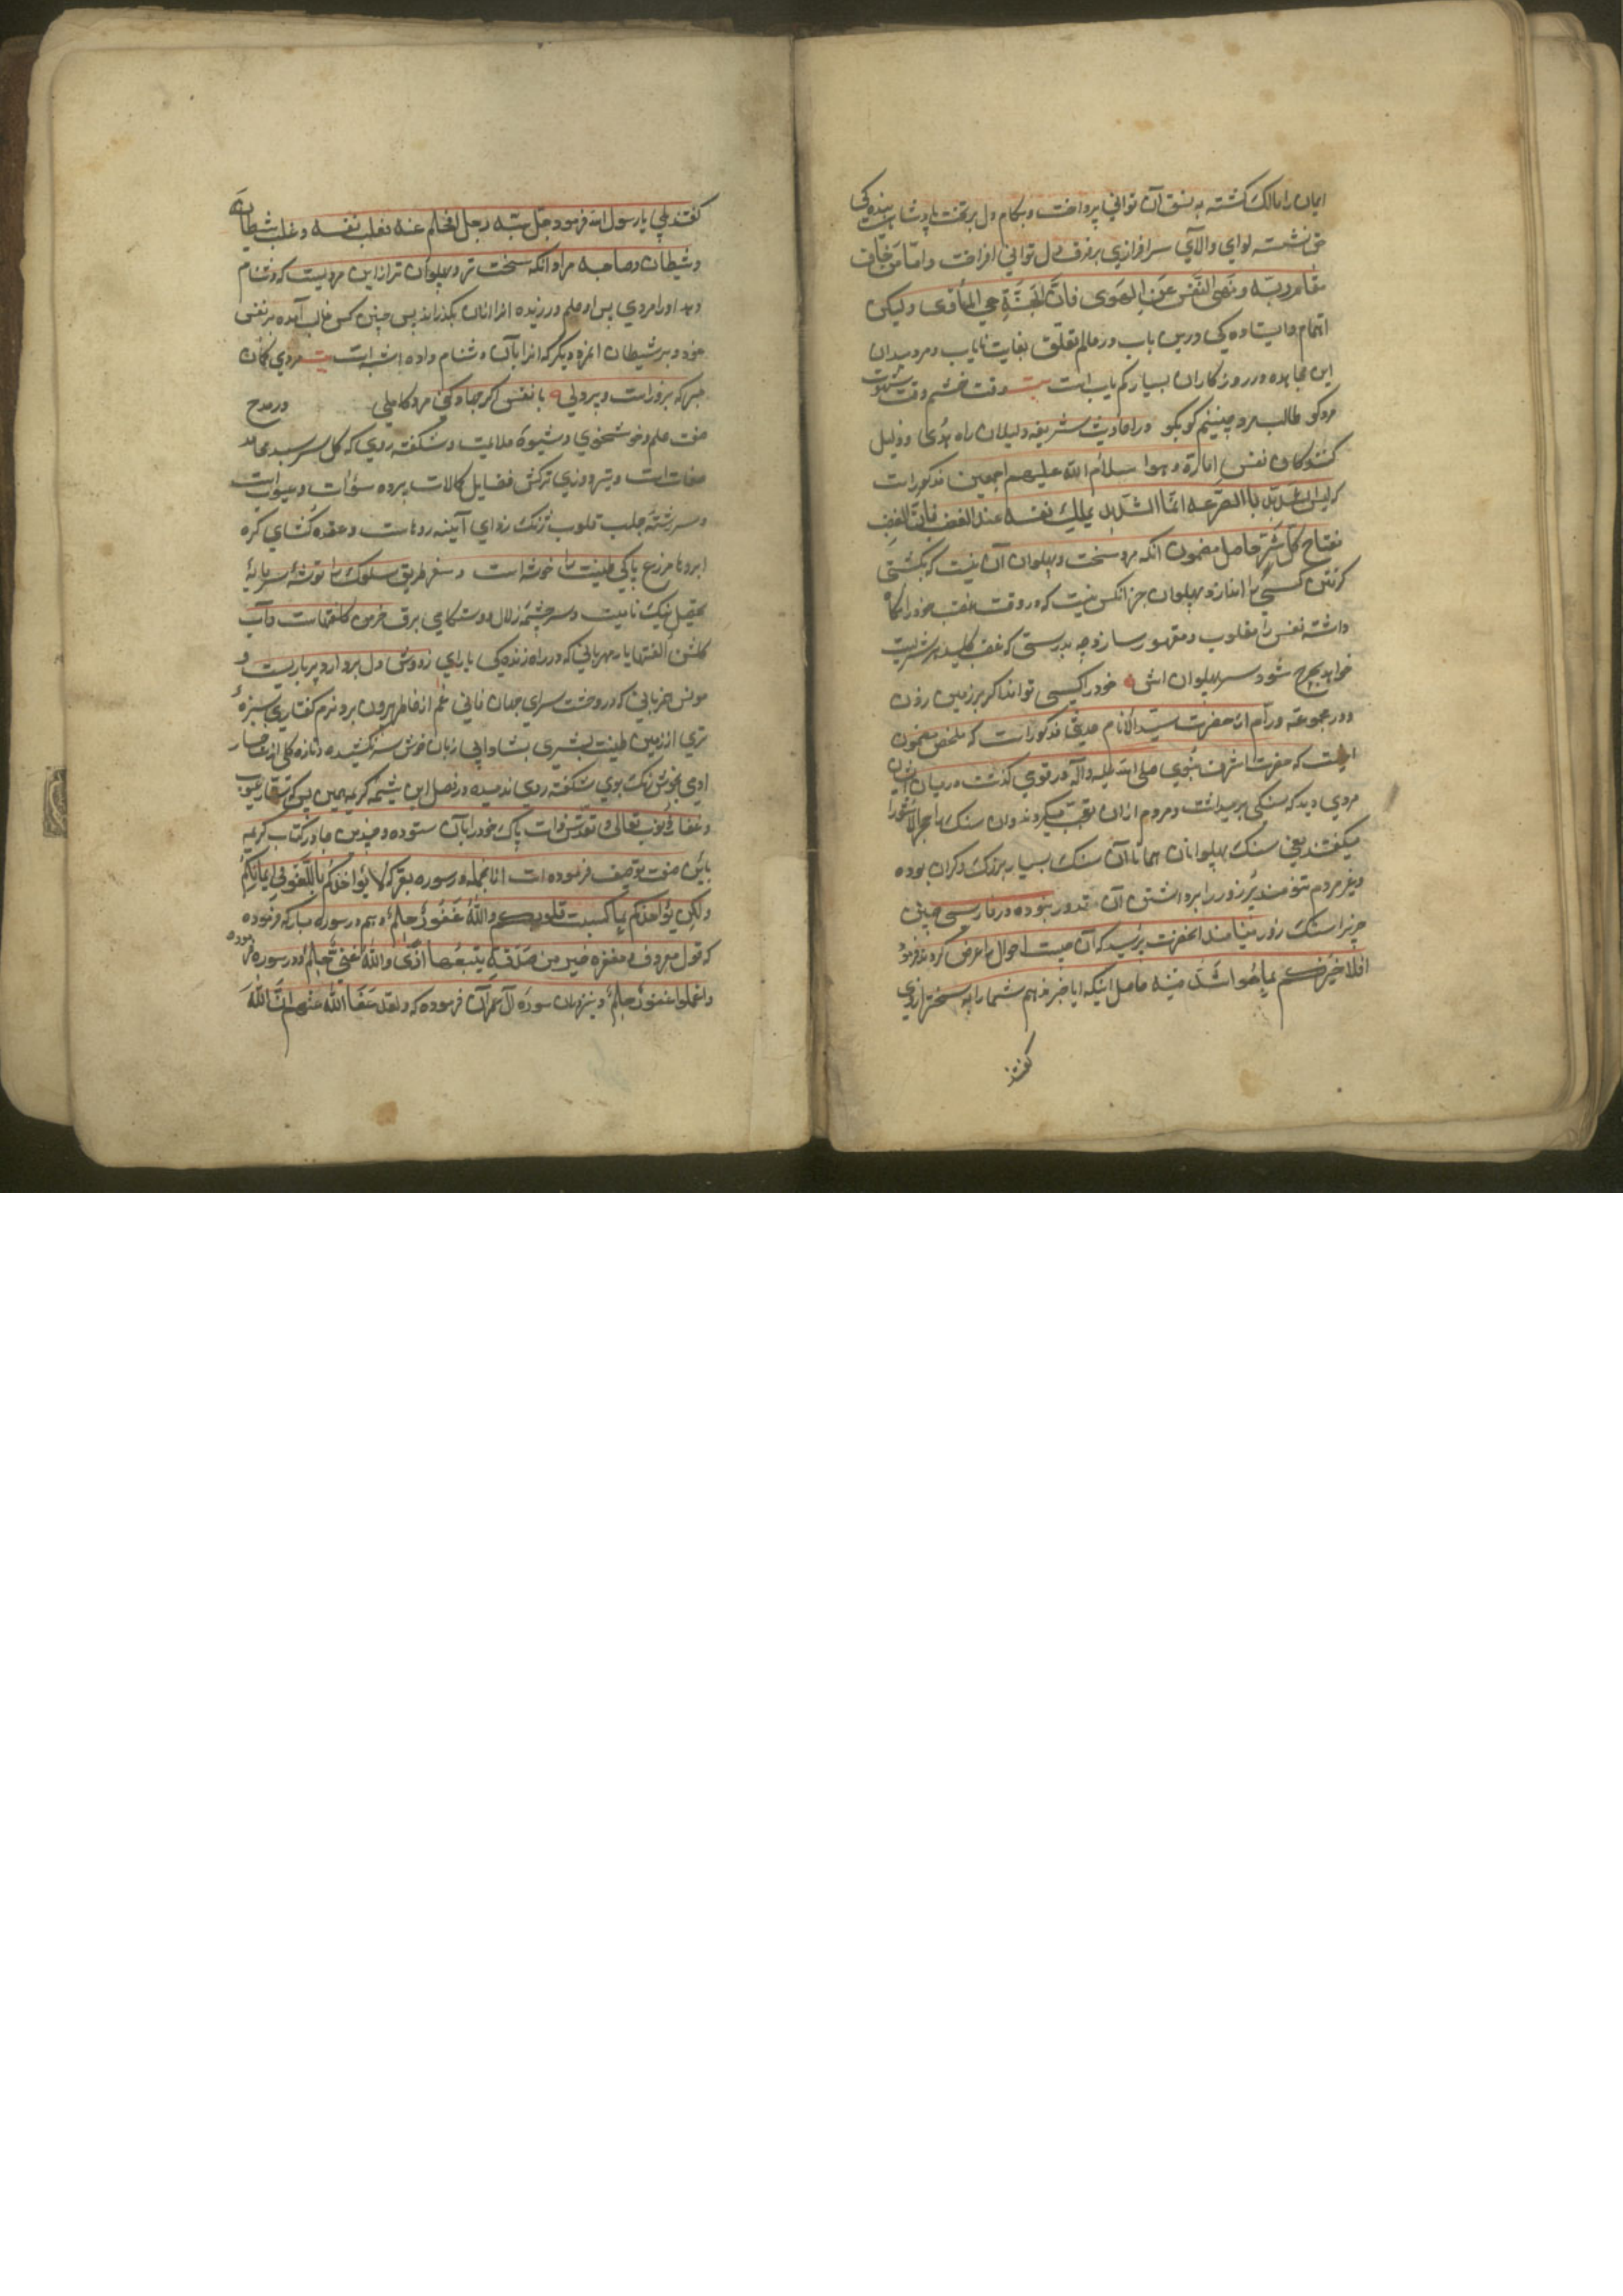 ایمان را مالک گشته به نسق آن توانی پرداخت و بکام دل بر تخت پادشاهیت بنده کی
حق نشسته لوای والای سرافرازی بر فرق دل توانی افراخت و امّا من خاف
مقام ربّه و نهی النّفس عن الهوی فانّ الجنّة هی المأوی ولیکن
اهتمام و ایستاده کی درین باب در عالم تعلّق بغایت نایاب و مرد میدان
این مجاهده در روزکاران بسیار کم یاب است بیت وقت خشم و وقت شهوت
مرد کو طالب مرد چنینم کو بکو در احادیث شریفه دلیلان راه هدی و ذلیل
کنندکان نفس اماره و هوا سلام الله علیهم اجمعین مذکورات
که لیس الشدید بالصرعه انّما الشدید یملک نفسه عند الغضب فانّ الغضب
مفتاح کلّ شرّ حاصل مضمون آنکه مرد سخت و پهلوان آن نیست که بکشتی
کرفتن کسی را اندازد پهلوان جز آنکس نیست که در وقت غضب خود را نکاه
داشته نفس را مغلوب و مقهور سازد چه بدرستی که غضب کلید هر شریست
خواهد بچرخ شود سر پهلوان اش خود را کسی تواند اکر بر زمین زدن
و در مجموعه ورّام از حضرت سیّد الانام حدیثی مذکورات که ملخص مضمون
اینست که حضرت اشرف نبوی صلی الله علیه وآله در قومی کذشت در میان ایشان
مردی دید که سنکی بر میداشت و مردم از آن تعجّب میکردند و آن سنک را حجر الاشدّا
میکفتند یعنی سنک پهلوانان همانا آن سنک بسیار بزرک و کران بوده
و غیر مردم تنومند پر زور را برداشتن آن مقدور نبوده در فارسی چنین
چیز را سنک زور مینامند آنحضرت پرسید که آن چیست احوال را عرض کردند فرمود
افلا اخبرکم بما هو اشدّ منه حاصل اینکه آیا خبر ندهم شما را به سختر ازوی
کفتند
کفتند بلی یا رسول الله فرمود رجل سبّه رجل فحلم عنه فغلب نفسه و غلب شیطانه
و شیطان صاحبه مراد آنکه سخت تر و پهلوان تر از این مردیست که دشنام
دهد او را مردی پس او حلم ورزیده از آن بکذراند پس چنین کس غالب آمده بر نفس
خود و بر شیطان آنمرد دیکر که او را بآن دشنام داده است بیت مردی کمان
مبر که بزور است و پردلی با نفس اکر جهاد کنی مرد کاملی در مدح
صفت حلم و خوشخوی و شیوه ملایمت و شکفته روی که کل سر سبد محامد
صفات است و تیر روی ترکش فضایل کمالات پرده سوآت و عیوبست
و سر رشته جلب قلوب زنک زدای آیینه روهاست و عقده کشای کره
ابروها مزرع پاکی طینت را خوشه است و سفر طریق سلوک را توشه سرمایه
تحصیل نیک نامیت و سر چشمه زلال دوستکامی برق خرمن کلفتهاست و آب
کلشن الفتها یار مهربانی که در راه زنده کی بارای ز دوش دل بردارد پر باریست و
مونس همزبانی که در وحشت سرای جهان فانی غم از خاطر بیرون برد نرم کفتاری سبزه
تری از زمین طینت بشری بشادابی زبان خوش سر نکشیده و تازه کلی از شاخسار
آدمی بخوش رنک و بوی شکفته روی ندمیده در فضل این شیمه کریمه همین بس که ستّار عیوب
و غفّار ذنوب تعالی و تقدّس ذات پاک خود را بآن ستوده و چندین جا در کتاب کریم
باین صفت توصیف فرموده است از آنجمله در سوره بقره که لا یؤاخذکم الله باللّغو فی ایمانکم
ولکن یؤاخذکم بما کسبت قلوبکم والله غفور حلیم و هم در سوره مبارکه فرموده
که قول معروف و مغفرة خیر من صدقة یتبعها اذی والله غنیّ حلیم و در سوره فرموده
واعلموا غفور حلیم و نیز در آن سوره آل عمران فرموده که ولقد عفا الله عنهم انّ الله